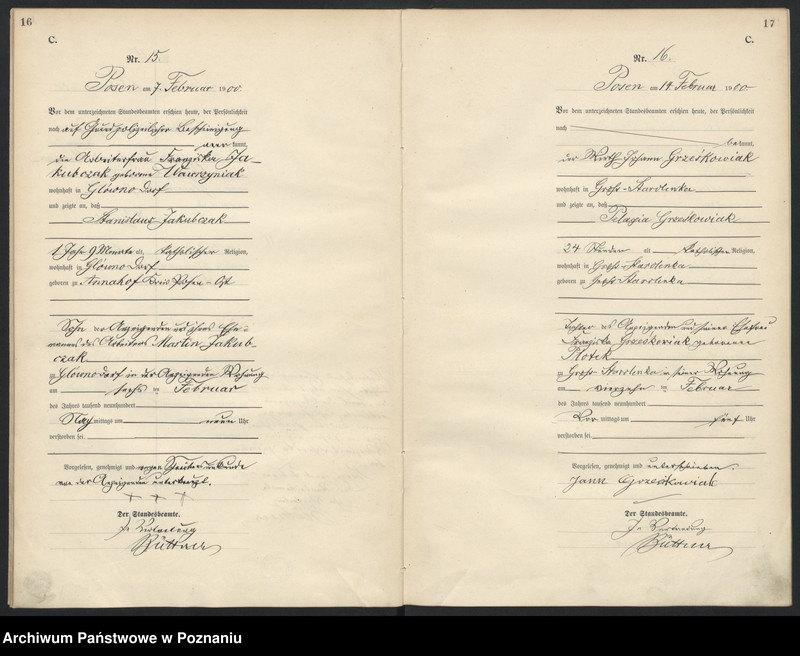 16
C.
Nr. 15.
Posen am 7. Februar 1900.
Vor dem unterzeichneten Standesbeamten erschien heute, der Persönlichkeit
nach auf Grund polizeilicher Bescheinigung
kannt,
die Arbeiterfrau Franziska Ja-
kubczak geborene Wawrzyniak
wohnhaft in Glówno Dorf
und zeigte an, daß
Stanislaus Jakubczak
1 Jahr 9 Monate alt, katholischer Religion,
wohnhaft in Glówno Dorf
geboren zu Annahof Kreis Posen-Ost
Sohn der Anzeigenden und ihres Ehe-
mannes des Arbeiters Martin Jakub-
czak
zu Glówno Dorf in der Anzeigenden Wohnung
am sechs ten Februar
des Jahres tausend neunhundert
Nachmittags um neun Uhr
verstorben sei.
Vorgelesen, genehmigt und wegen Schreibensunkunde
von der Anzeigenden unterkreuzt.
+ + +
Der Standesbeamte.
In Vertretung
Büttner
17
C.
Nr. 16.
Posen am 14. Februar 1900
Vor dem unterzeichneten Standesbeamten erschien heute, der Persönlichkeit
nach
bekannt,
der Wirth Johann Grześkowiak
wohnhaft in Gross-Starolenka
und zeigte an, daß
Pelagia Grześkowiak
24 Stunden alt katholischer Religion,
wohnhaft in Gross-Starolenka
geboren zu Gross Starolenka
Tochter des Anzeigenden und seiner Ehefrau
Franziska Grześkowiak geborenen
Plotek
zu Gross Starolenka in seiner Wohnung
am vierzehn ten Februar
des Jahres tausend neunhundert
Vor mittags um fünf Uhr
verstorben sei.
Vorgelesen, genehmigt und unterschrieben.
Jann Grześkowiak
Der Standesbeamte.
In Vertretung
Büttner
Archiwum Państwowe w Poznaniu